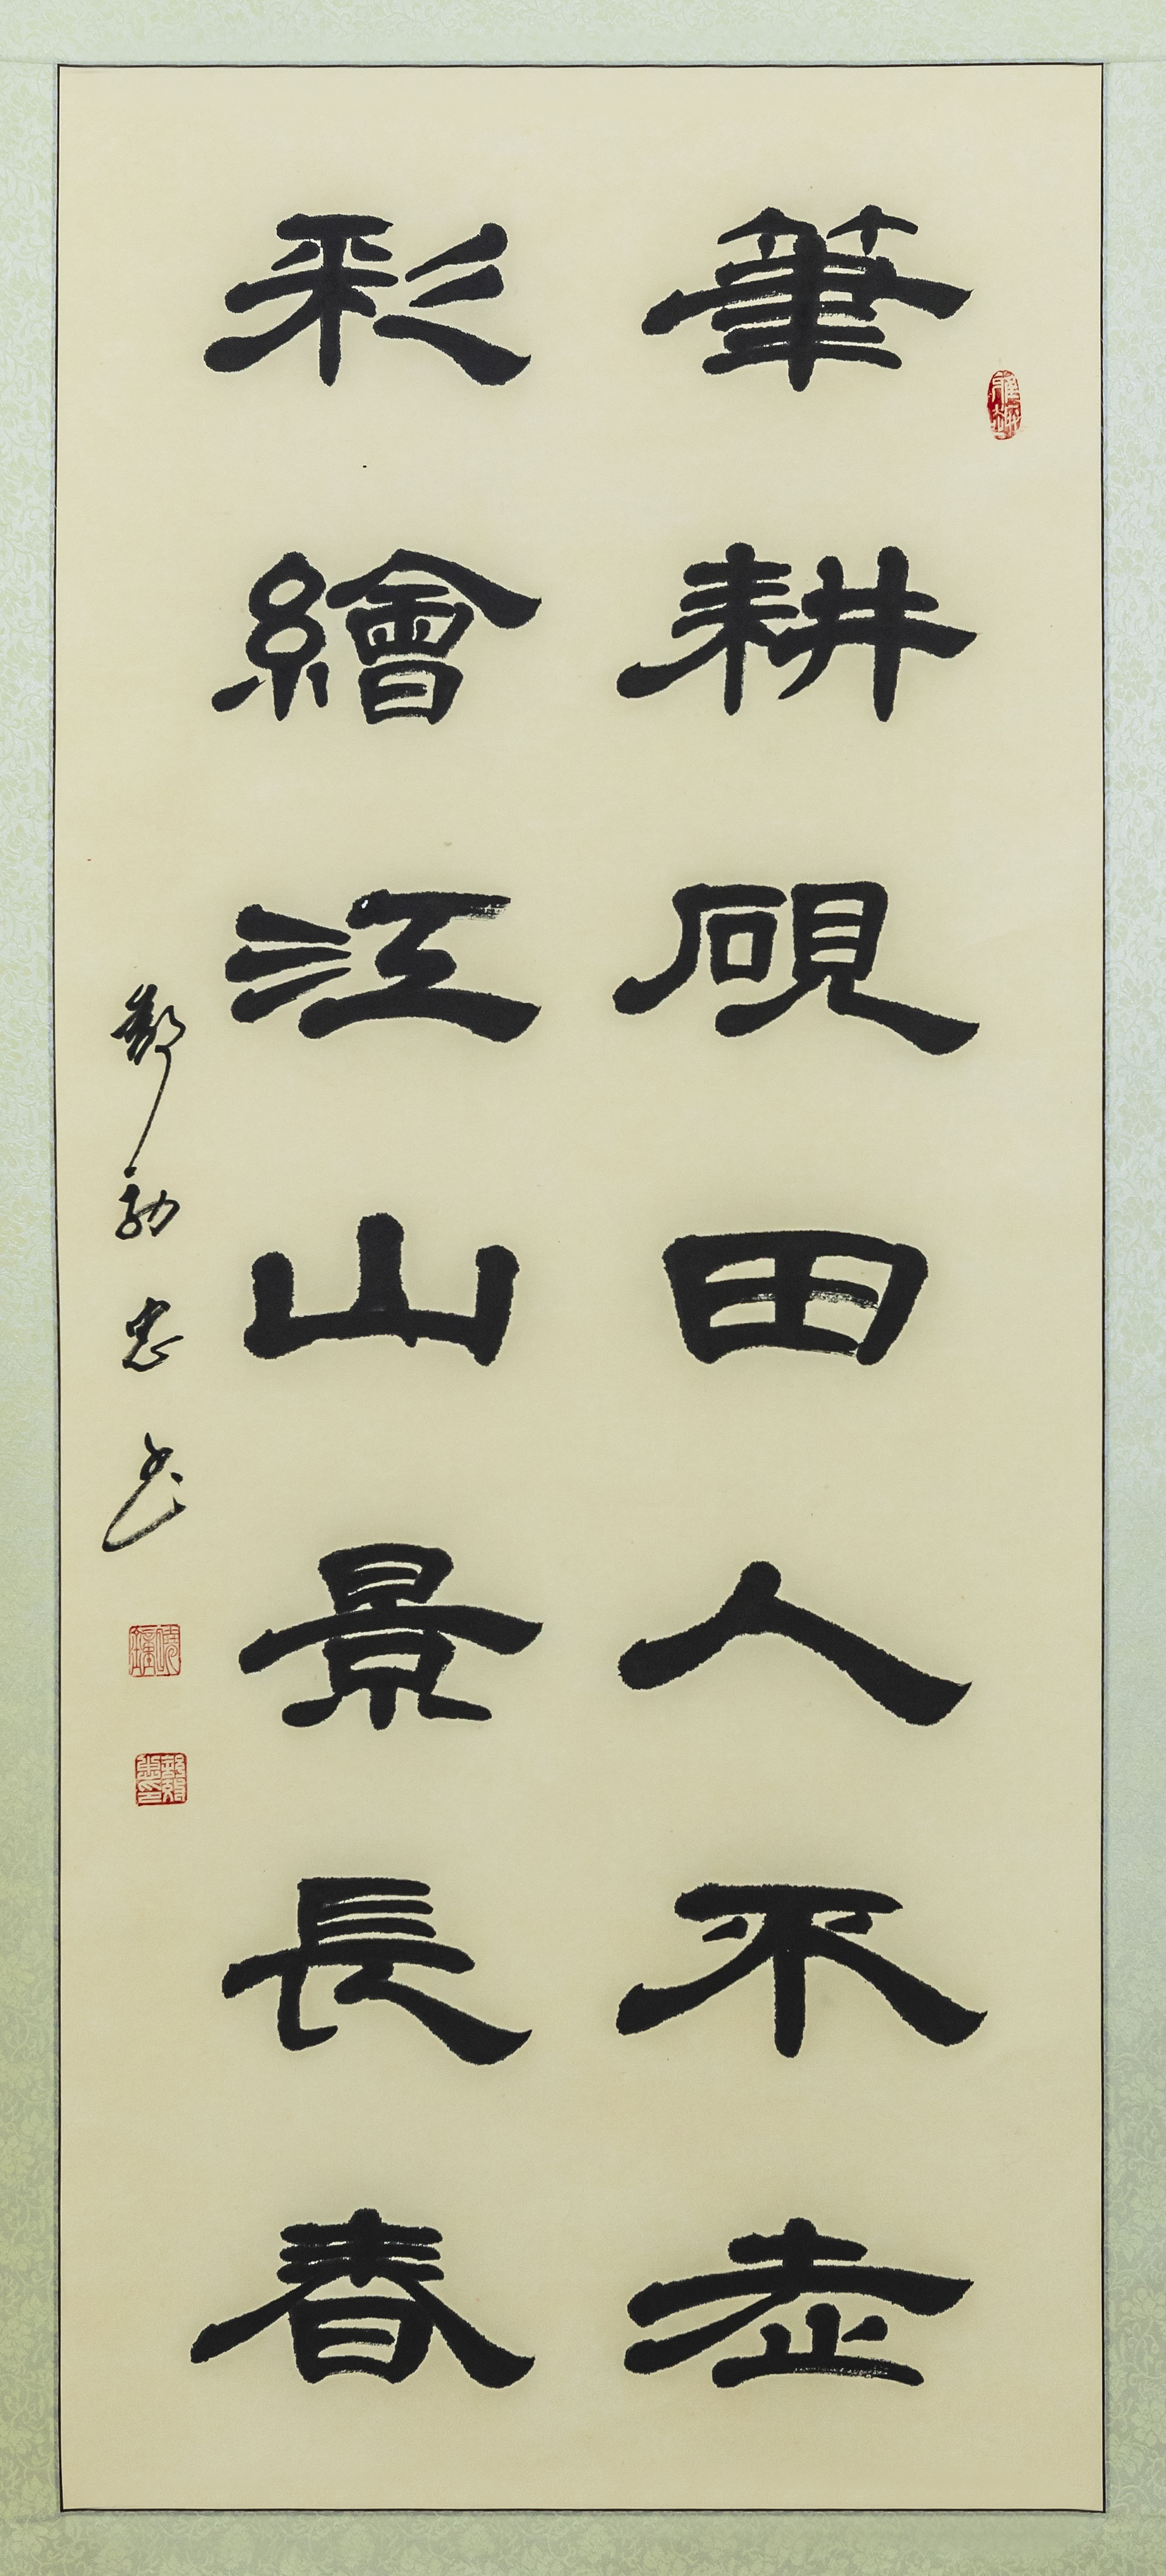 筆耕硯田人不老
彩繪江山景長春
忠书